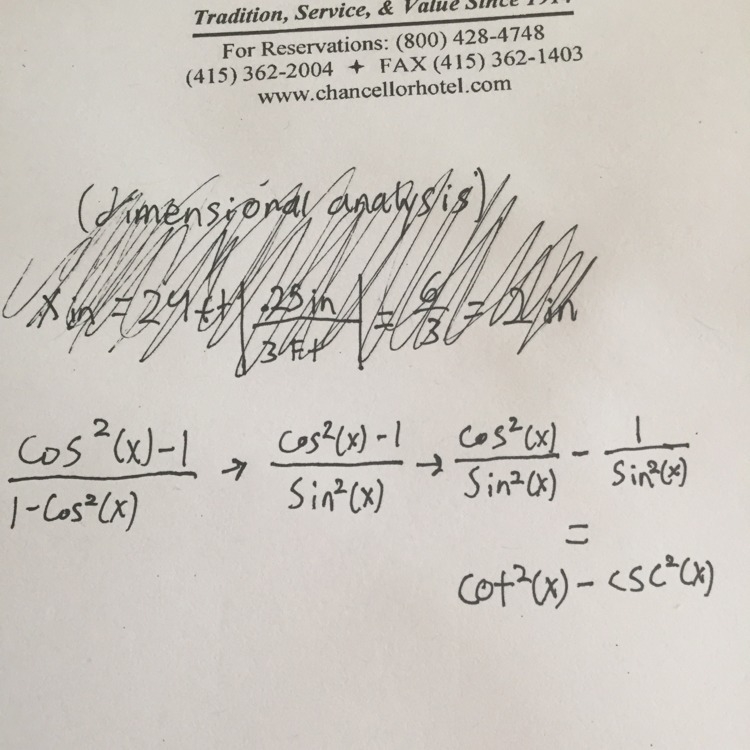 Tradition, Service, & Value Since 191
For Reservations: (800) 428-4748
(415) 362-2004 ✦ FAX (415) 362-1403
www.chancellorhotel.com
(dimensional analysis)
x in = 24 ft | .25 in / 3 ft | = 6/3 = 2 in
(Cos²(x)-1)/(1-Cos²(x)) → (Cos²(x)-1)/(Sin²(x)) → Cos²(x)/Sin²(x) - 1/Sin²(x)
=
Cot²(x) - csc²(x)